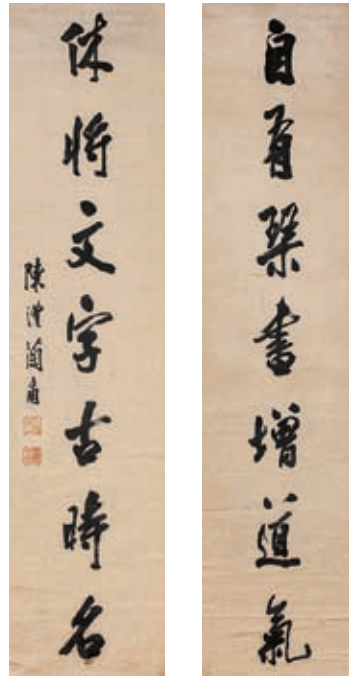 自有琴書增道氣
休將文字占時名
陳澧蘭甫